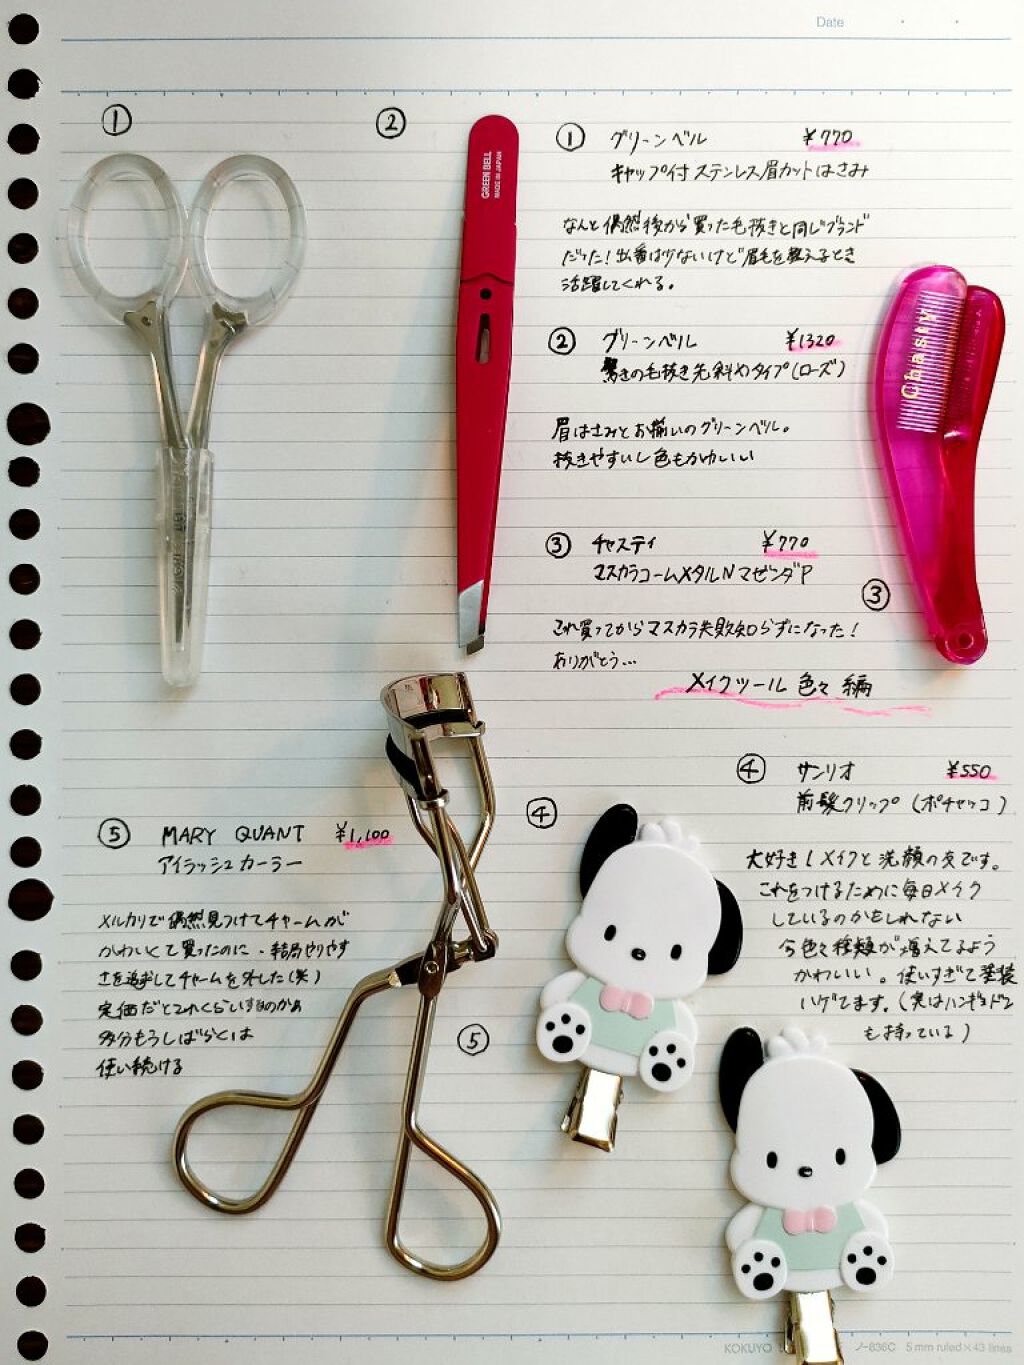 Date
①
②
① グリーンベル ¥770
キャップ付ステンレス眉カットはさみ
なんと偶然後から買った毛抜きと同じブランド
だった！出番は少ないけど眉毛を整えるとき
活躍してくれる。
GREEN BELL
MADE IN JAPAN
② グリーンベル ¥1320
驚きの毛抜き先斜めタイプ(ローズ)
眉はさみとお揃いのグリーンベル。
抜きやすいし色もかわいい
Chasty
③ チャスティ ¥770
マスカラコームメタルNマゼンダP
③
これ買ってからマスカラ失敗知らずになった！
ありがとう…
メイクツール色々編
④ サンリオ ¥550
前髪クリップ(ポチャッコ)
④
大好き！メイクと洗顔の友です。
これをつけるために毎日メイク
しているのかもしれない
今色々種類が増えてるよう
かわいい。使いすぎて塗装
ハゲてます。(実はハンギョドン
も持っている)
⑤ MARY QUANT ¥1,100
アイラッシュカーラー
メルカリで偶然見つけてチャームが
かわいくて買ったのに、結局やりやす
さを追求してチャームを外した(笑)
定価だとこれくらいするのかぁ
多分もうしばらくは
使い続ける
⑤
KOKUYO ノ-836C 5mm ruled×43 lines